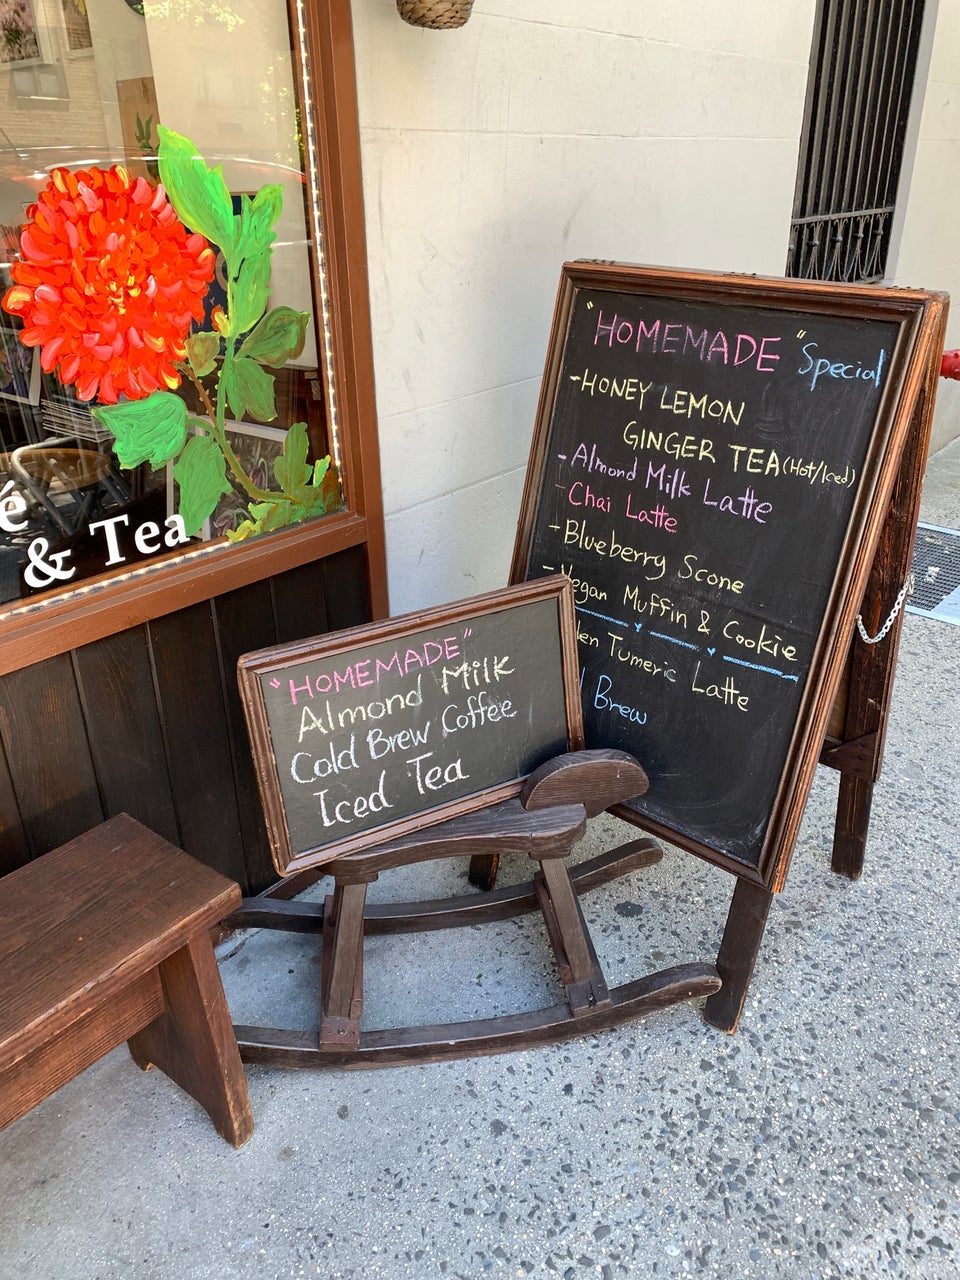 é
& Tea
"HOMEMADE" Special
-HONEY LEMON
GINGER TEA (Hot/Iced)
-Almond Milk Latte
-Chai Latte
-Blueberry Scone
-Vegan Muffin & Cookie
Tumeric Latte
Brew
"HOMEMADE"
Almond Milk
Cold Brew Coffee
Iced Tea